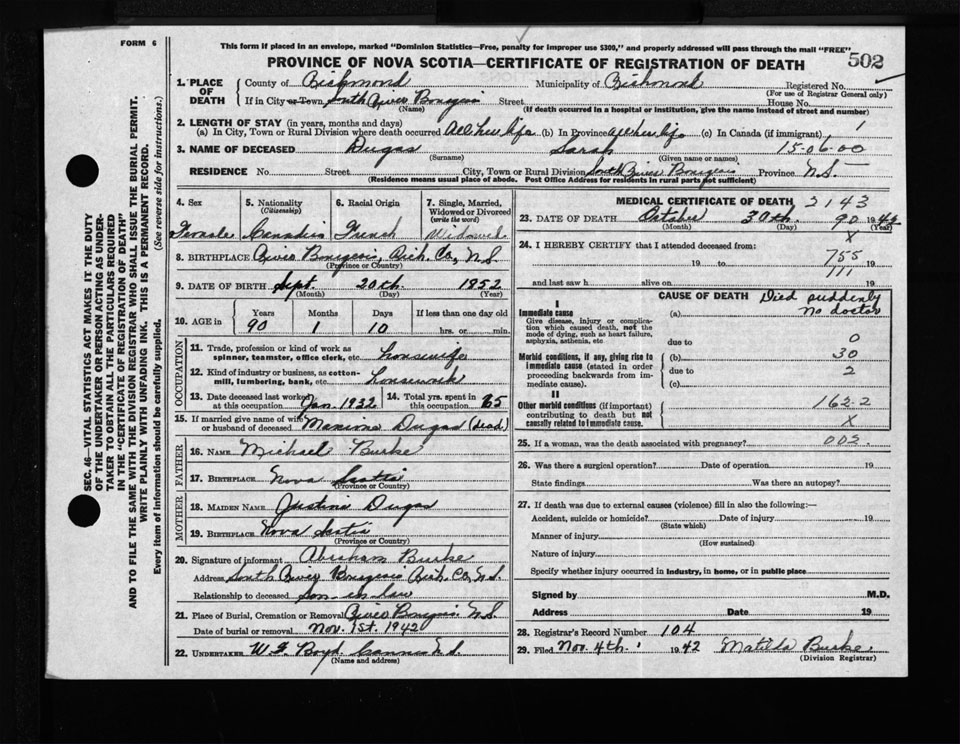 FORM 6
This form if placed in an envelope, marked "Dominion Statistics—Free, penalty for improper use $300," and properly addressed will pass through the mail "FREE"
PROVINCE OF NOVA SCOTIA—CERTIFICATE OF REGISTRATION OF DEATH 502
1. PLACE OF DEATH County of Richmond Municipality of Richmond Registered No.
(For use of Registrar General only)
If in City or Town South River Bourgeois Street House No.
(Name) (If death occurred in a hospital or institution, give the name instead of street and number)
2. LENGTH OF STAY (in years, months and days)
(a) In City, Town or Rural Division where death occurred All her life (b) In Province All her life (c) In Canada (if immigrant) 1
3. NAME OF DECEASED Dugas Sarah 15-06-00
(Surname) (Given name or names)
RESIDENCE No. Street City, Town or Rural Division South River Bourgeois Province N.S.
(Residence means usual place of abode. Post Office Address for residents in rural parts not sufficient)
4. Sex 5. Nationality (Citizenship) 6. Racial Origin 7. Single, Married, Widowed or Divorced (write the word)
Female Canadian French Widowed
8. BIRTHPLACE River Bourgeois, Rich. Co, N.S.
(Province or Country)
9. DATE OF BIRTH Sept. 20th. 1852
(Month) (Day) (Year)
10. AGE in Years Months Days If less than one day old
90 1 10 hrs. or min.
OCCUPATION
11. Trade, profession or kind of work as spinner, teamster, office clerk, etc. housewife
12. Kind of industry or business, as cotton-mill, lumbering, bank, etc. housework
13. Date deceased last worked at this occupation Jan. 1932 14. Total yrs. spent in this occupation 65
15. If married give name of wife or husband of deceased Dugas (dead)
FATHER
16. NAME Michael Burke
17. BIRTHPLACE Nova Scotia
(Province or Country)
MOTHER
18. MAIDEN NAME Justine Dugas
19. BIRTHPLACE Nova Scotia
(Province or Country)
20. Signature of informant Abraham Burke
Address South River Bourgeois Rich. Co, N.S.
Relationship to deceased Son-in-law
21. Place of Burial, Cremation or Removal River Bourgeois N.S.
Date of burial or removal Nov. 1st. 1942
22. UNDERTAKER W. Boyd N.S.
(Name and address)
MEDICAL CERTIFICATE OF DEATH 2143
23. DATE OF DEATH October 30th. 90 1942
(Month) (Day) (Year)
X
24. I HEREBY CERTIFY that I attended deceased from:
19 to 755 19
and last saw h alive on 111 19
CAUSE OF DEATH Died suddenly
No doctor
I
Immediate cause (a)
Give disease, injury or complication which caused death, not the mode of dying, such as heart failure, asphyxia, asthenia, etc due to 0
Morbid conditions, if any, giving rise to immediate cause (stated in order proceeding backwards from immediate cause). (b) 30
due to 2
(c)
II
Other morbid conditions (if important) contributing to death but not causally related to immediate cause. 162.2
X
25. If a woman, was the death associated with pregnancy? 002
26. Was there a surgical operation? Date of operation 19
State findings Was there an autopsy?
27. If death was due to external causes (violence) fill in also the following:—
Accident, suicide or homicide? Date of injury 19
(State which)
Manner of injury
(How sustained)
Nature of injury
Specify whether injury occurred in industry, in home, or in public place
Signed by M.D.
Address Date 19
28. Registrar's Record Number 104
29. Filed Nov. 4th. 1942 Matilda Burke
(Division Registrar)
SEC. 46—VITAL STATISTICS ACT MAKES IT THE DUTY
OF THE UNDERTAKER OR PERSON ACTING AS UNDER-
TAKER TO OBTAIN ALL THE PARTICULARS REQUIRED
IN THE "CERTIFICATE OF REGISTRATION OF DEATH"
AND TO FILE THE SAME WITH THE DIVISION REGISTRAR WHO SHALL ISSUE THE BURIAL PERMIT.
WRITE PLAINLY WITH UNFADING INK. THIS IS A PERMANENT RECORD.
Every item of information should be carefully supplied. (See reverse side for instructions.)